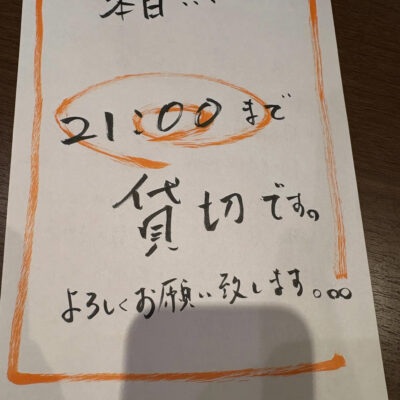 本日
21:00まで
貸切です。
よろしくお願い致します。